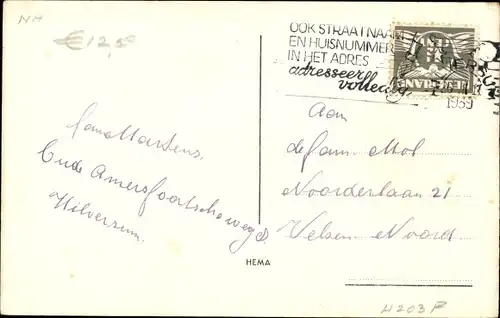 NH
€ 12,50
OOK STRAATNAAM
EN HUISNUMMER
IN HET ADRES
adresseer
volledig
1939
NEDERLAND
Fam Hartens.
Oude Amersfoortscheweg
Hilversum.
Aan
de fam Mol
Noorderlaan 21
Velsen Noord
HEMA
H203P